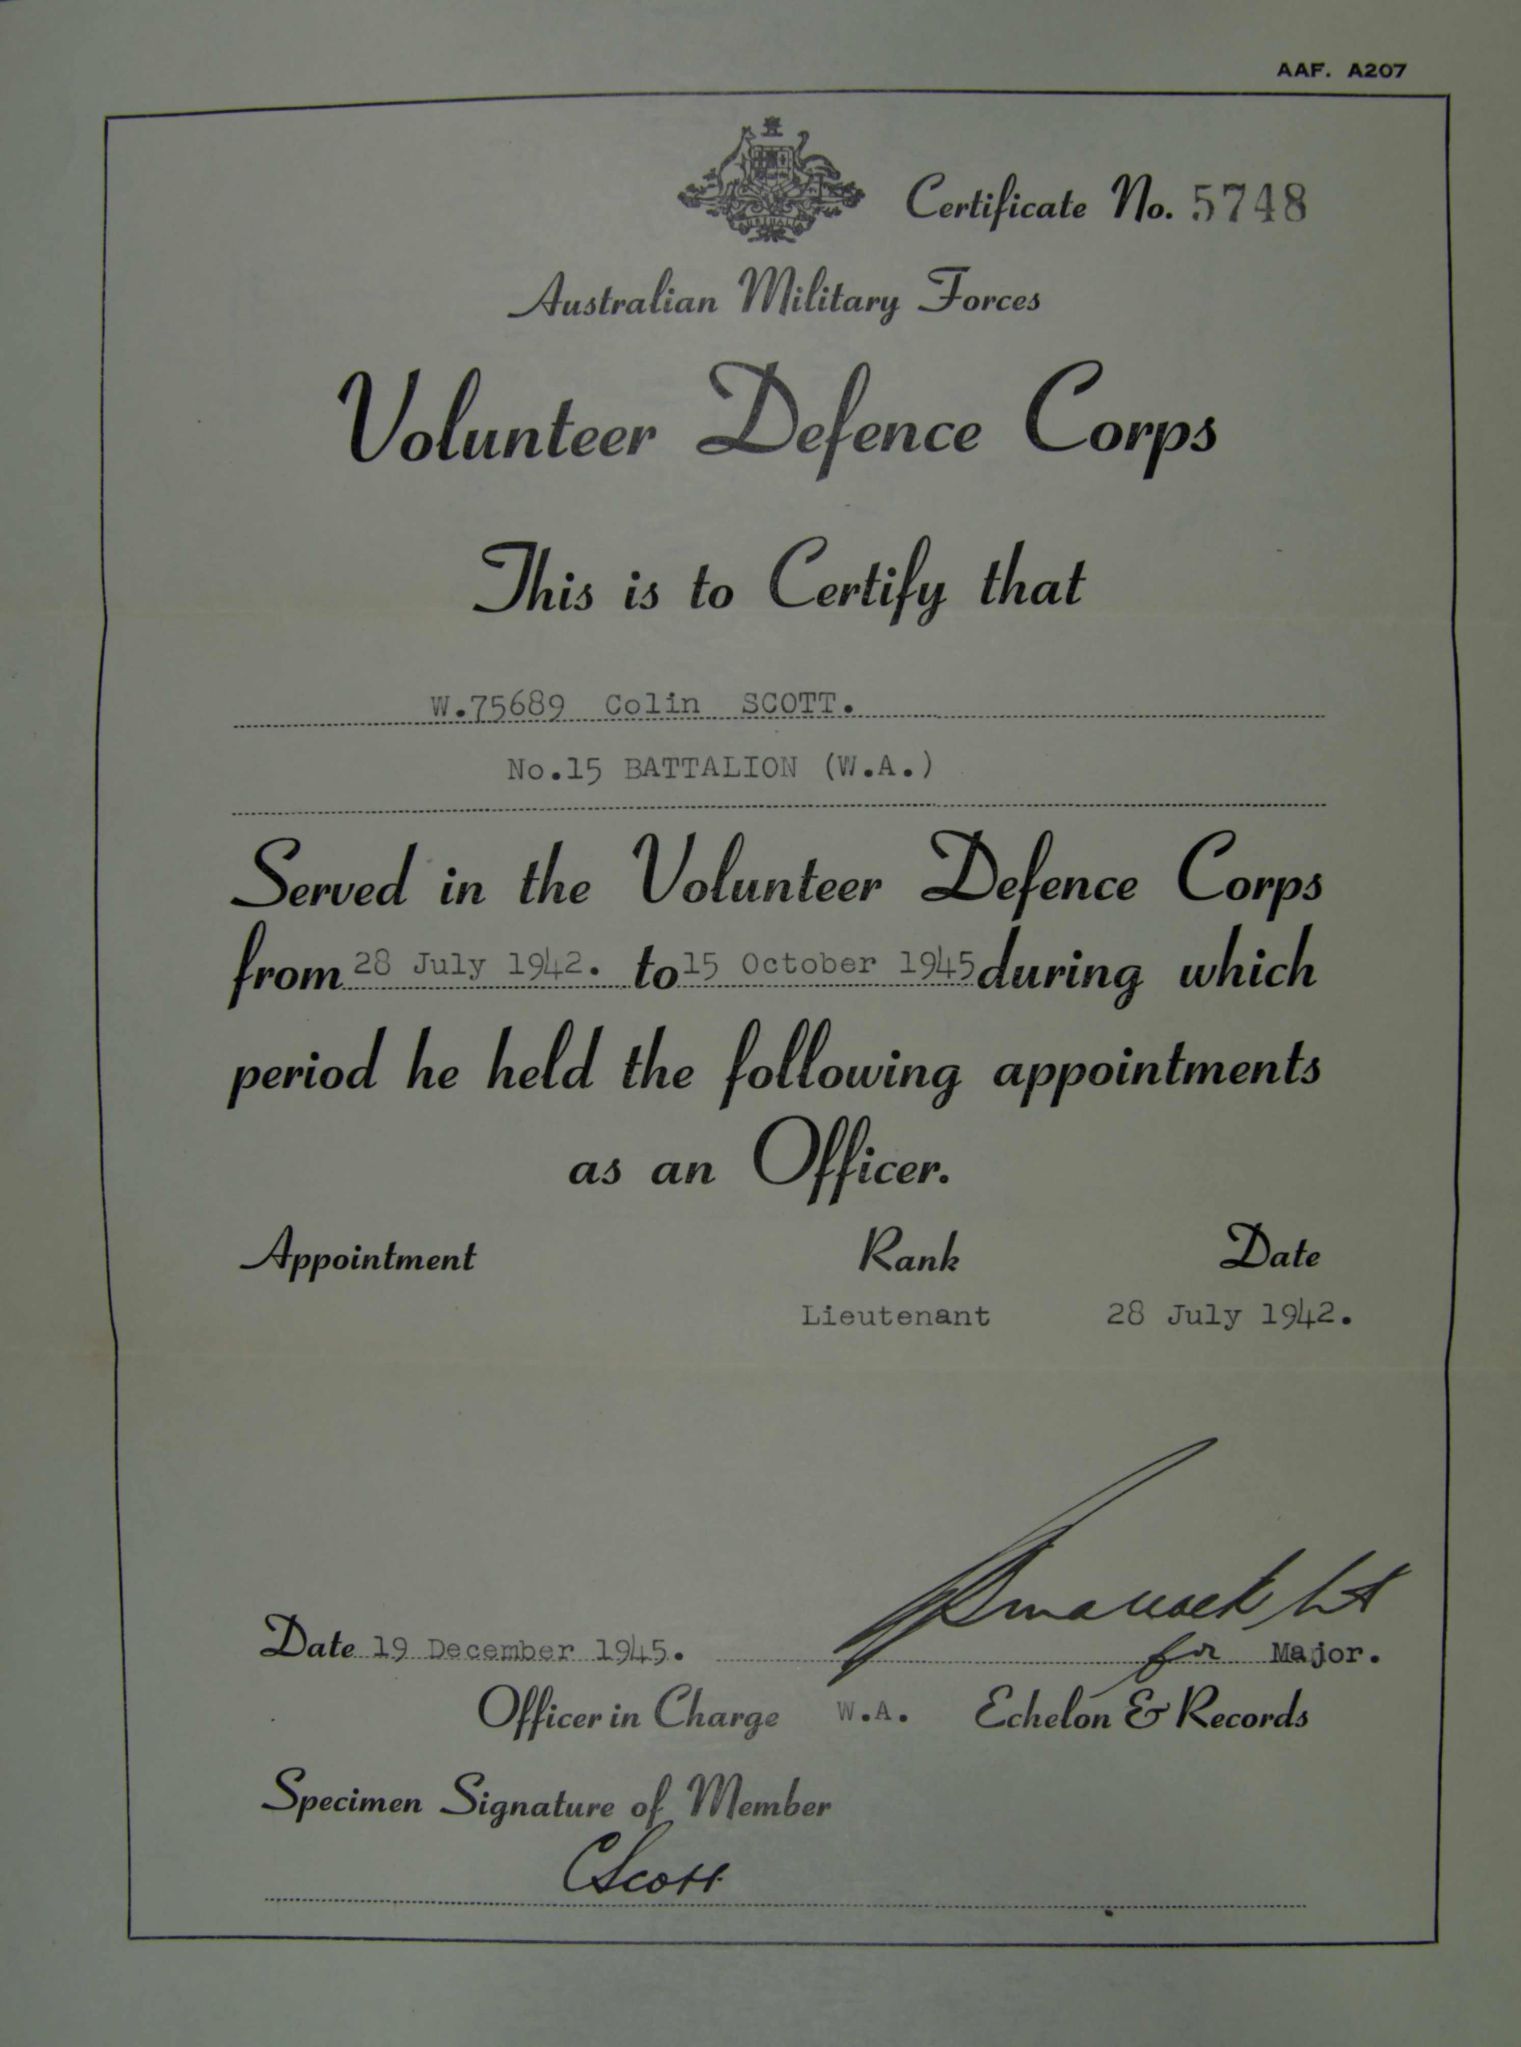 AAF. A207
AUSTRALIA
Certificate No. 5748
Australian Military Forces
Volunteer Defence Corps
This is to Certify that
W.75689 Colin SCOTT.
No.15 BATTALION (W.A.)
Served in the Volunteer Defence Corps
from 28 July 1942. to 15 October 1945 during which
period he held the following appointments
as an Officer.
Appointment Rank Date
Lieutenant 28 July 1942.
Date 19 December 1945. for Major.
Officer in Charge W.A. Echelon & Records
Specimen Signature of Member
CScott